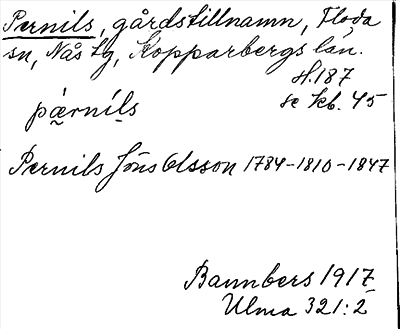 Pernils, gårdstillnamn, Floda
sn, Nås tg, Kopparbergs län.
H.187
se kb. 45
pærnils
Pernils Jöns Olsson 1784-1810-1847
Bannbers 1917
Ulma 321:2